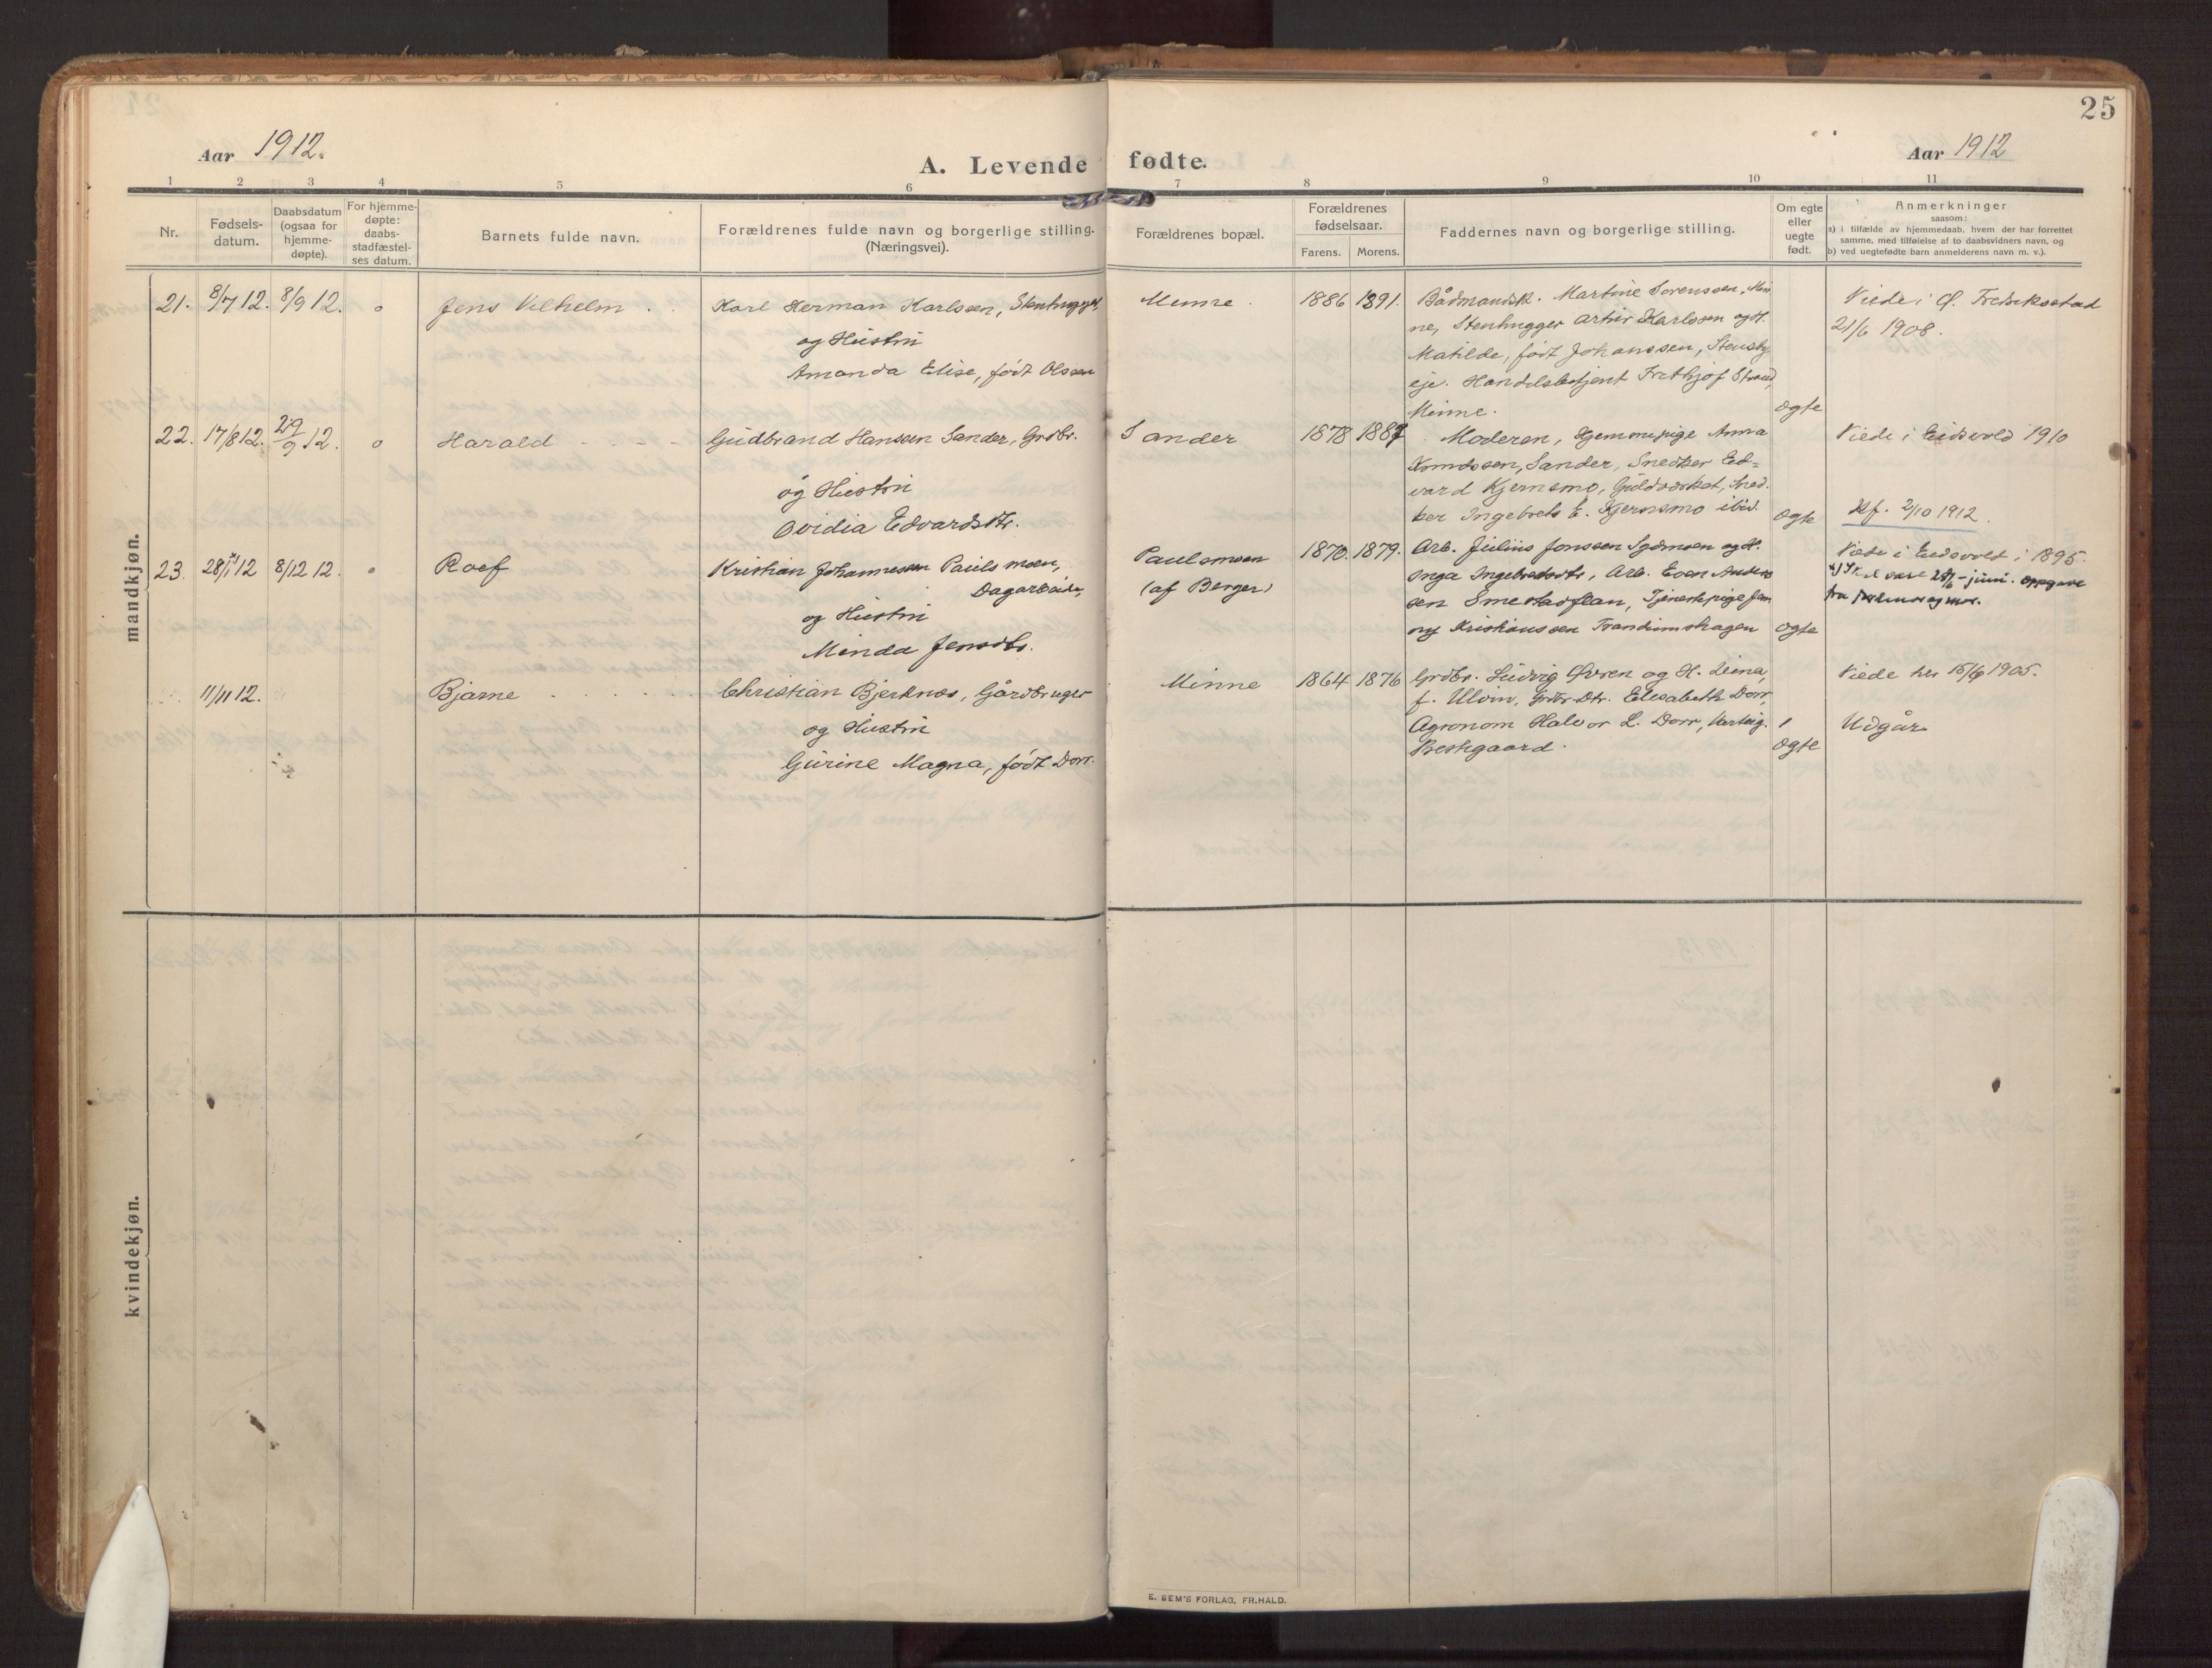 25
Aar 1912.
A. Levende fødte.
Aar 1912
1 2 3 4 5 6 7 8 9 10 11
Nr.
Fødsels-
datum.
Daabsdatum
(ogsaa for
hjemme-
døpte).
For hjemme-
døpte:
daabs-
stadfæstel-
ses datum.
Barnets fulde navn.
Forældrenes fulde navn og borgerlige stilling.
(Næringsvei).
Forældrenes bopæl.
Forældrenes
fødselsaar.
Farens. Morens.
Faddernes navn og borgerlige stilling.
Om egte
eller
uegte
født.
Anmerkninger
saasom:
a) i tilfælde av hjemmedaab, hvem der har forrettet
samme, med tilføielse af to daabsvidners navn, og
b) ved uegtefødte barn anmelderens navn m. v.).
mandkjøn.
21. 8/7 12. 8/9 12. 0
Jens Vilhelm
Karl Herman Karlssen, Stenhugger,
og Hustru
Amanda Elise, født Olssen
Minne.
1886 1891.
Bådmandsk. Martine Sorenssen, Min
ne, Stenhugger Artur Karlssen og H.
Matilde, født Johanssen, Stensby
eje. Handelsbetjent Frithjof Strand,
Minne.
ogte
Viede i Ø. Fredrikstad
21/6 1908.
22. 17/8 12. 29/9 12. 0
Harald
Gudbrand Hansen Sander, Grdbr.
og Hustru
Ovidia Edvardsdtr.
Sander
1878 1887
Moderen, Hjemmepige Anna
Knudssen, Sander, Snedker Ed=
vard Kjernsmo, Guldverket, Sned.
ker Ingebret E. Kjernsmo ibid.
ogte
Viede i Eidsvold 1910
Af. 2/10 1912.
23. 28/1 12 8/12 12.
Roef
Kristian Johannesen Paulsmoen,
Dagarbeider,
og Hustru
Minda Jensdtr.
Paulsmoen
(af Berger)
1870. 1879.
Arb. Julius Jonssen Sydmoen og H.
Inga Ingebretsdtr, Arb. Even Anders
sen Smestadflan, Tjenestepige Jen
ny Kristianssen Trandumshagen
ogte
Viede i Eidsvold i 1895.
x) Skal være 28/6 - juni. Oppgave
fra jordmor og mor.
11/11 12.
Bjarne
Christian Bjerknes, Gårdbruger
og Hustru
Gurine Magna, født Dorr.
Minne
1864 1876
Grdbr. Ludvig Ovren og H. Lina,
f. Ulvin, Grdbr. Dtr. Elisabeth Dorr,
Agronom Halvor L. Dorr,
ogte
Viede her 15/6 1905.
Udgår
kvindekjøn.
E. SEM'S FORLAG, FR.HALD.